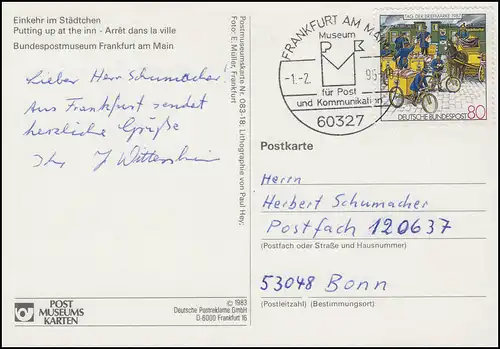 Einkehr im Städtchen
Putting up at the inn - Arrêt dans la ville
Bundespostmuseum Frankfurt am Main
Lieber Herr Schumacher!
Aus Frankfurt sendet
herzliche Grüße
Ihr J
POST
MUSEUMS
KARTEN
© 1983
Deutsche Postreklame GmbH
D-6000 Frankfurt 16
Postmuseumskarte Nr. 083-18; Lithographie von Paul Hey;
Foto: E. Müller, Frankfurt
FRANKFURT AM MAIN
Museum
-1.-2
für Post
und Kommunikation
60327
TAG DER BRIEFMARKE 1987
DEUTSCHE BUNDESPOST 80
Postkarte
Herrn
Herbert Schumacher
Postfach 120637
(Postfach oder Straße und Hausnummer)
53048 Bonn
(Postleitzahl) (Bestimmungsort)